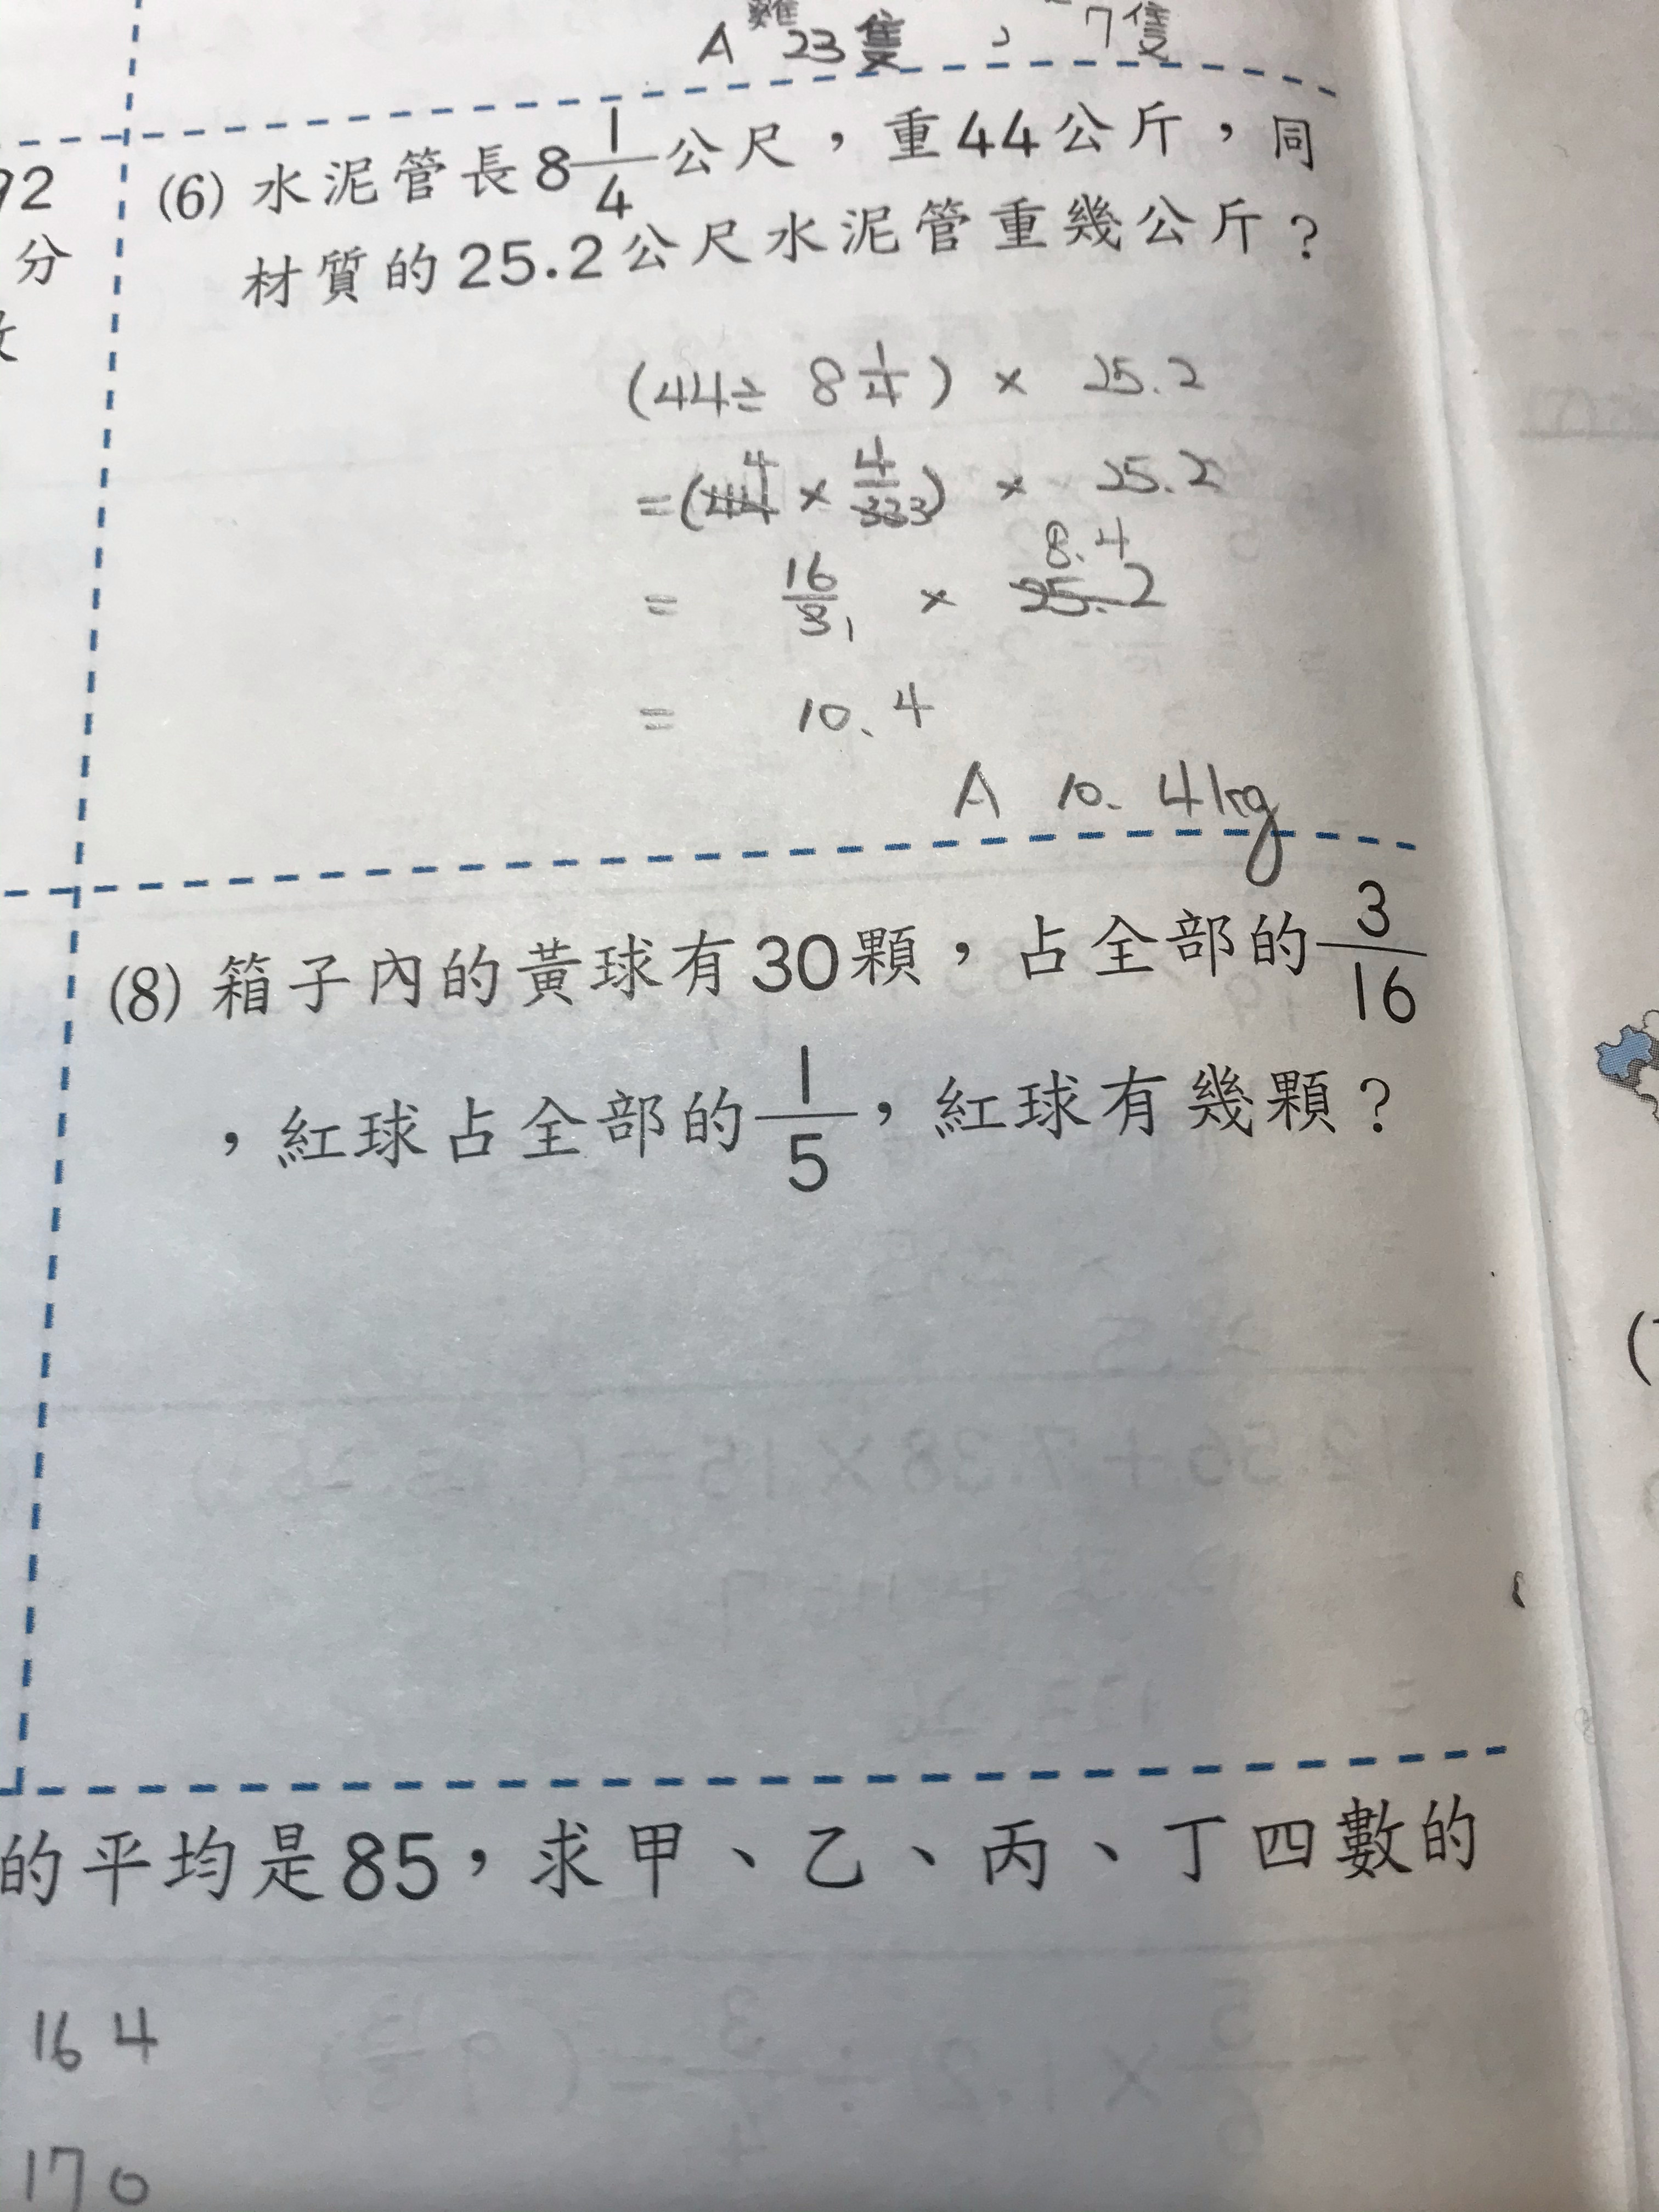 A 雞 23隻 、 7隻
92
(6) 水泥管長8 1/4 公尺，重44公斤，同
分
材質的25.2公尺水泥管重幾公斤？
(44÷ 8 1/4) × 25.2
=(44 4 × 4/33 3) × 25.2
= 16/3 1 × 25.2 8.4
= 10.4
A 10.4kg
(8) 箱子內的黃球有30顆，占全部的 3/16
，紅球占全部的 1/5，紅球有幾顆？
的平均是85，求甲、乙、丙、丁四數的
164
170